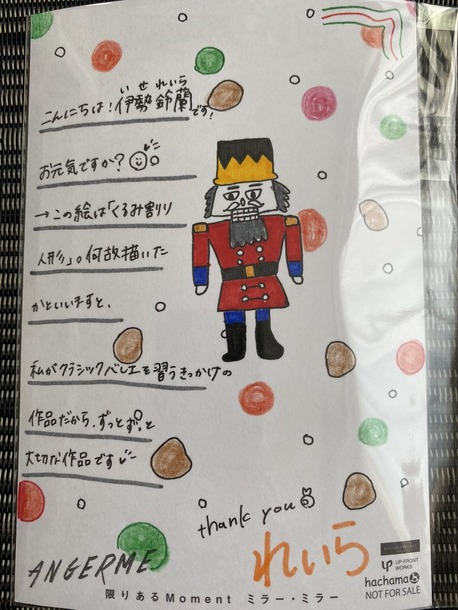 いせれいら
こんにちは！伊勢鈴蘭です！
お元気ですか？
→この絵は「くるみ割り
人形」。何故描いた
かといいますと、
私がクラシックバレエを習うきっかけの
作品だから、ずっとずっと
大切な作品です
thank you
れいら
ANGERME
限りあるMoment ミラー・ミラー
UP
UP-FRONT
WORKS
hachama
NOT FOR SALE